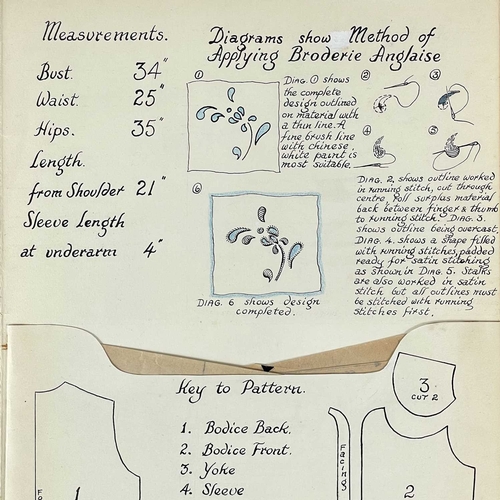 Measurements.
Bust. 34"
Waist. 25"
Hips. 35"
Length.
from Shoulder 21"
Sleeve Length
at underarm 4"
Diagrams show Method of
Applying Broderie Anglaise
1
DIAG. 1 shows
the complete
design outlined
on material with
a thin line. A
fine brush line
with chinese
white paint is
most suitable.
2
3
4
5
DIAG. 2, shows outline worked
in running stitch, cut through
centre, roll surplus material
back between finger & thumb
to running stitch. DIAG. 3.
shows outline being overcast.
DIAG. 4. shows a shape filled
with running stitches, padded
ready for satin stitching
as shown in DIAG. 5. Stalks
are also worked in satin
stitch but all outlines must
be stitched with running
stitches first.
6
DIAG. 6 shows design
completed.
Key to Pattern.
1. Bodice Back.
2. Bodice Front.
3. Yoke
4. Sleeve
3
CUT 2
Facing
1
2